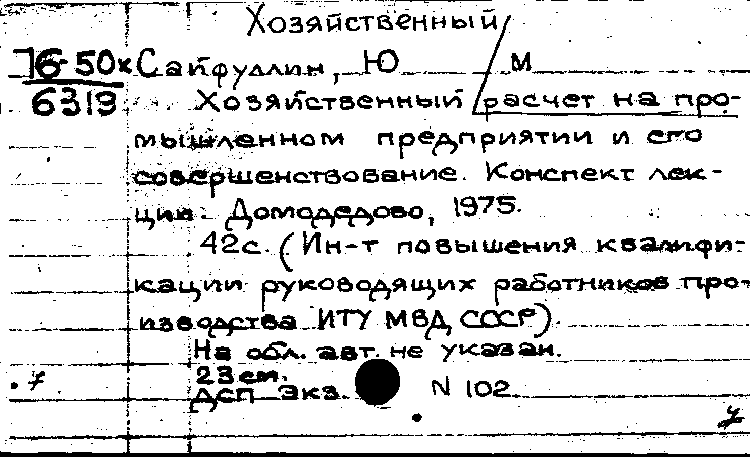 Хозяйственный
76-50к Сайфуллин, Ю М
6319 Хозяйственный расчет на про-
мышленном предприятии и его
совершенствование. Конспект лек-
ции. Домодедово, 1975.
42с. (Ин-т повышения квалифи-
кации руководящих работников про-
изводства ИТУ МВД СССР).
На обл. авт. не указан.
23см.
ДСП Экз. N 102